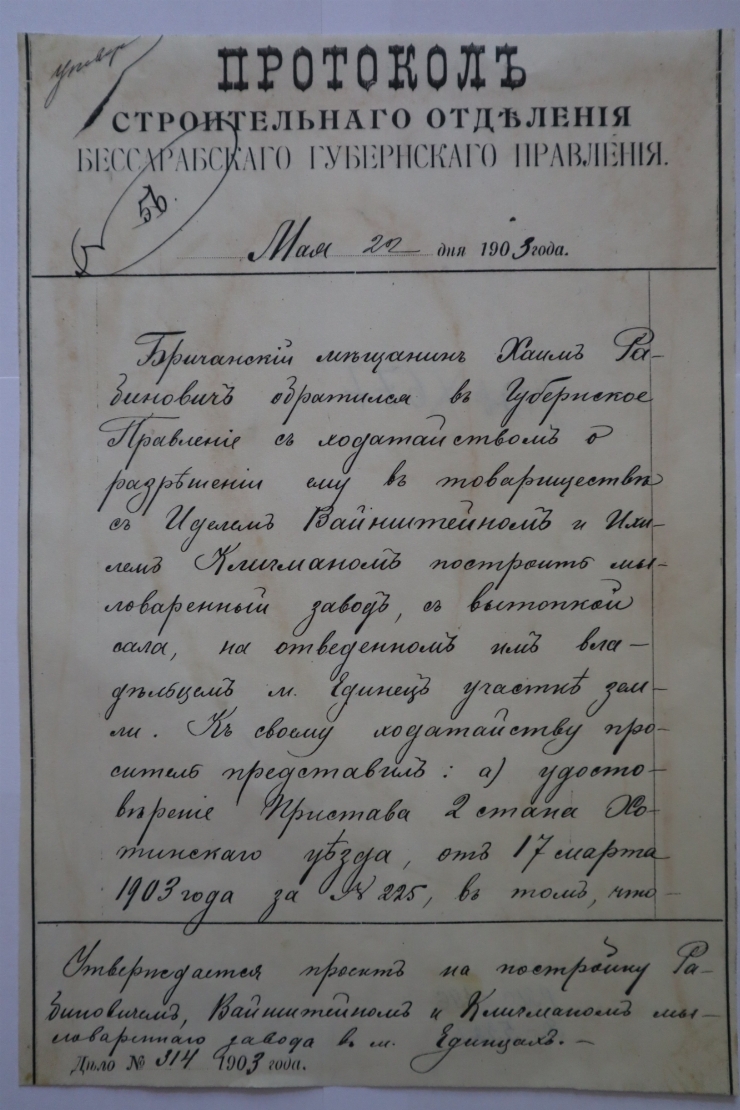 ПРОТОКОЛЪ
СТРОИТЕЛЬНАГО ОТДѢЛЕНІЯ
БЕССАРАБСКАГО ГУБЕРНСКАГО ПРАВЛЕНІЯ.
56.
Мая 22 дня 1903 года.
Бричанскій мѣщанинъ Хаимъ Ра-
биновичъ обратился въ Губернское
Правленіе съ ходатайствомъ о
разрѣшеніи ему въ товариществѣ
съ Иделемъ Вайнштейномъ и Ихи-
лемъ Клигманомъ построить мы-
ловаренный заводъ, съ вытопкой
сала, на отведенномъ имъ вла-
дѣльцемъ м. Единецъ участкѣ зем-
ли. Къ своему ходатайству про-
ситель представилъ: а) удосто-
вѣреніе Пристава 2 стана Хо-
тинскаго уѣзда, отъ 17 марта
1903 года за № 225, въ томъ, что
Утверждается проектъ на постройку Ра-
биновичемъ, Вайнштейномъ и Клигманомъ мы-
ловареннаго завода въ м. Единцахъ. -
Дѣло № 314 1903 года.